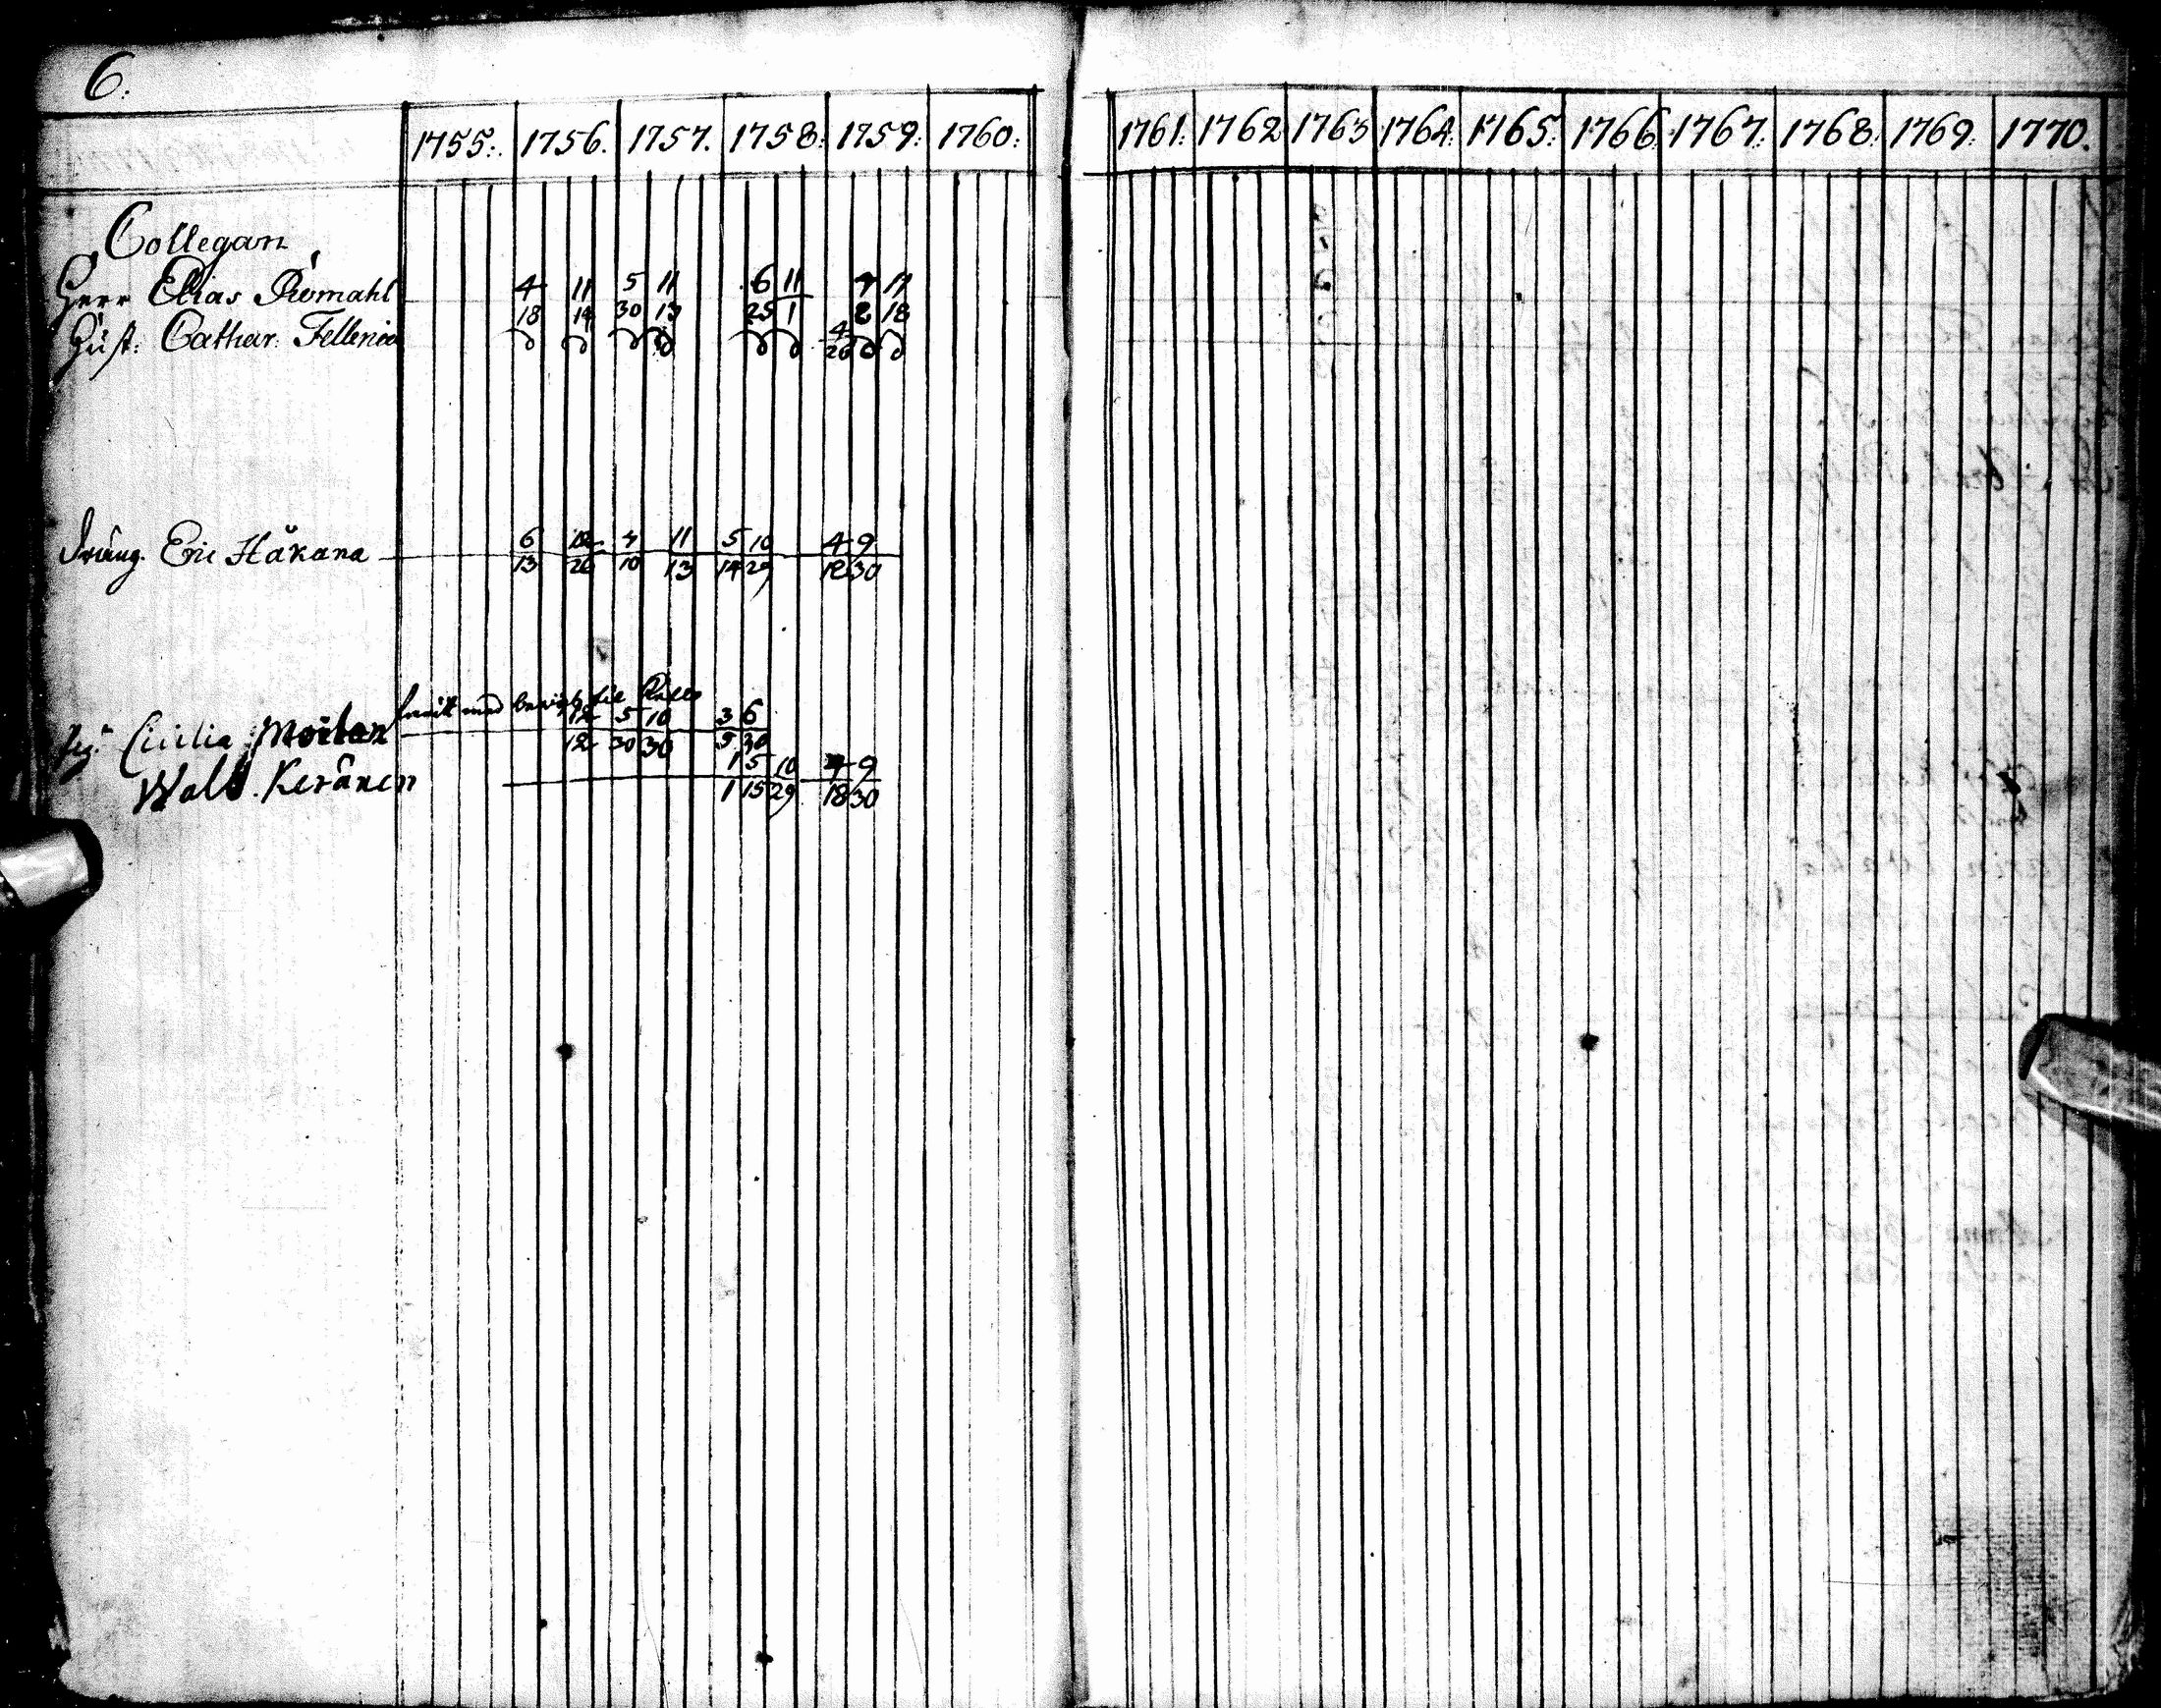 6.
1755. 1756. 1757. 1758. 1759. 1760. 1761. 1762 1763 1764. 1765. 1766. 1767. 1768. 1769. 1770.
Collegan
Herr Elias
4 11 5 11 6 11
18 14 30 13 25 1 8 18
Hust: Cathar: Fellenia
4
20
Dräng. Eric Håkana
6 12 4 11 5 10 4 9
13 26 10 13 14 29 12 30
med til
12 5 10 3 6
Pig. Cicilia Moilan
12 30 30 5 30
1 5 10 4 9
Walb. Keränen
1 15 29 18 30